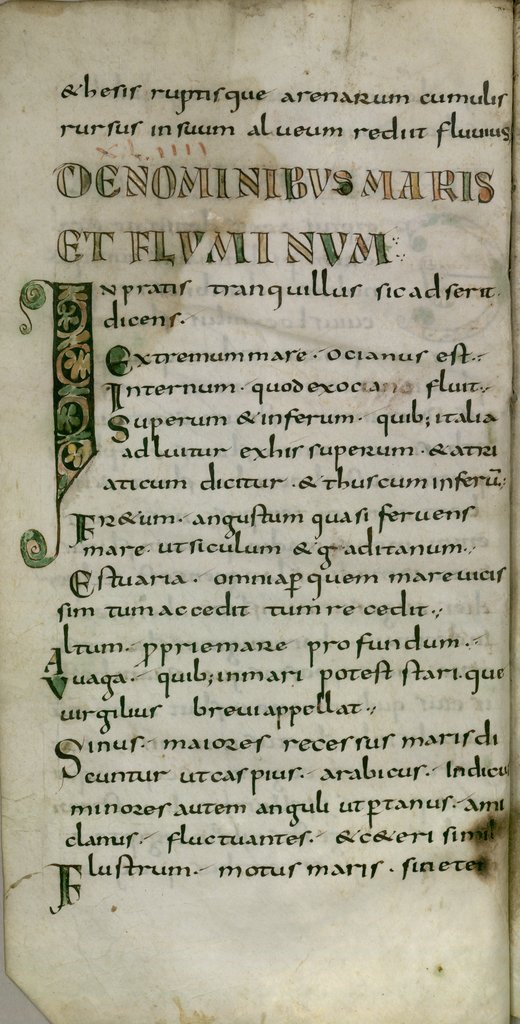 & hesis ruptisque arenarum cumulis
rursus in suum alueum rediit fluuius
xliiii
DE NOMINIBVS MARIS
ET FLVMINVM
IN pratis tranquillus sic adserit
dicens.
Extremum mare. ocianus est.
Internum. quod exociano fluit.
Superum & inferum. quib; italia
adluitur exhis superum. & atri
aticum dicitur. & thuscum inferū.
Fr&um. angustum quasi feruens
mare. ut siculum & gaditanum.
Estuaria. omnia ꝑ quem mare uicis
sim tum accedit tum recedit.
Altum. ꝓprie mare profundum.
Vuaga. quib; inmari potest stari. que
uirgilius breui appellat.
Sinus. maiores recessus maris di
cuntur ut caspius. arabicus. Indicu
minores autem anguli ut ptanus. ami
clanus. fluctuantes. & c&eri simil
Flustrum. motus maris. sine te